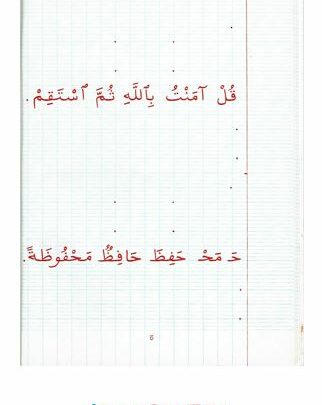 قُلْ آمَنْتُ بِٱللَّهِ ثُمَّ ٱسْتَقِمْ.
حَـ مَحْـ حَفِظَ حَافِظٌ مَحْفُوظَةً.